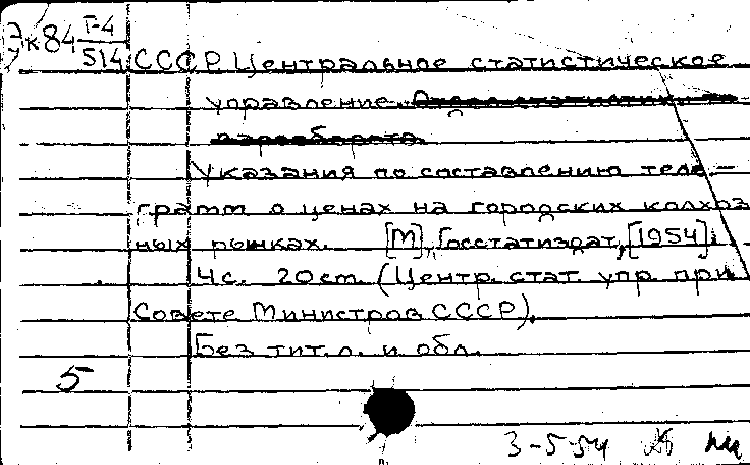 Эк84 Т-4
514
СССР. Центральное статистическое
управление. Отдел статистики то
варооборота.
Указания по составлению теле-
грамм о ценах на городских колхоз
ных рынках. [М], Госстатиздат, [1954].
4с. 20см. (Центр. стат. упр. при
Совете Министров СССР).
Без тит. л. и обл.
5
3-5-54